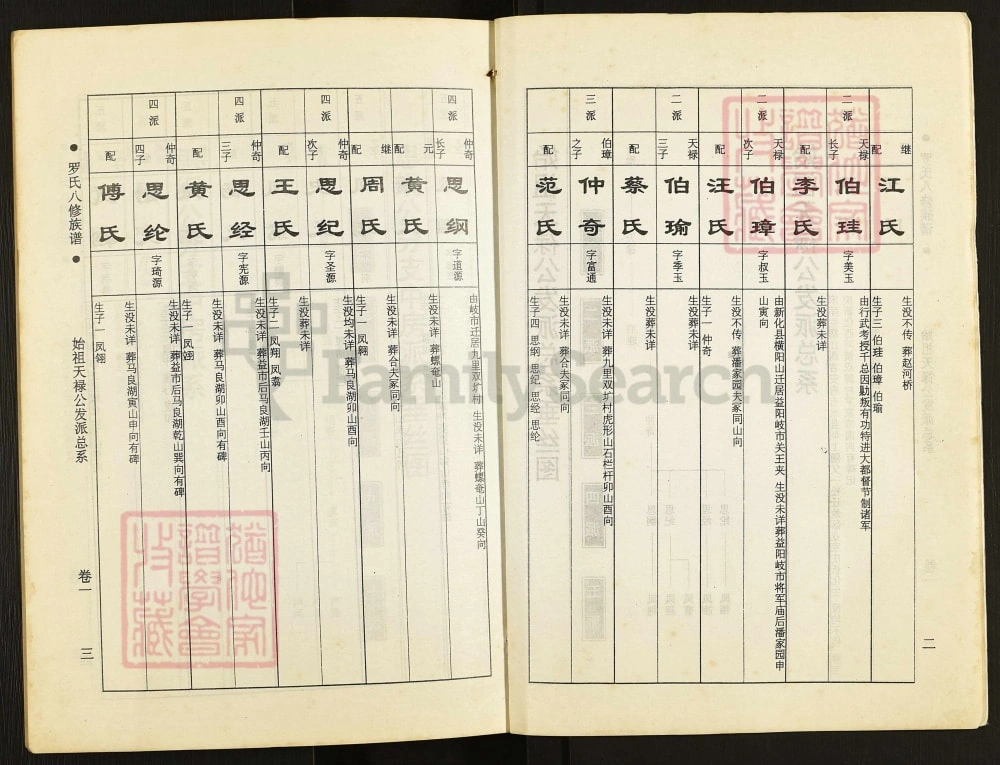 继配
江氏
生没不传 葬赵河桥
生子三 伯珪 伯璋 伯瑜
二派
天禄长子
伯珪
字美玉
由行武考授千总因勦叛有功特进大都督节制诸军
配
李氏
生没葬未详
二派
天禄次子
伯璋
字叔玉
由新化县横阳山迁居益阳岐市关王夹 生没未详葬益阳岐市将军庙后潘家园申
山寅向
配
汪氏
生没不传 葬潘家园夫冢同山向
生子一 仲奇
二派
天禄三子
伯瑜
字季玉
生没葬未详
配
蔡氏
生没葬未详
三派
伯璋之子
仲奇
字富通
生没未详 葬九里双圹村虎形山石栏杆卯山酉向
配
范氏
生没未详 葬合夫冢同向
生子四 思纲 思纪 思经 思纶
二
四派
仲奇长子
思纲
字道源
由岐市迁居九里双圹村 生没未详 葬螺奄山丁山癸向
元配
黄氏
生没未详 葬螺奄山
继配
周氏
生没未详 葬合夫冢同向
生子一 凤翱
四派
仲奇次子
思纪
字圣源
生没均未详 葬马良湖卯山酉向
配
王氏
生没葬未详
生子二 凤翔 凤翥
四派
仲奇三子
思经
字宪源
生没未详 葬益市后马良湖壬山丙向
配
黄氏
生没未详 葬马良湖卯山酉向有碑
生子一 凤翊
四派
仲奇四子
思纶
字琦源
生没未详 葬益市后马良湖乾山巽向有碑
配
傅氏
生没未详 葬马良湖寅山申向有碑
生子一 凤翎
罗氏八修族谱
始祖天禄公发派总系
卷一
三
FamilySearch